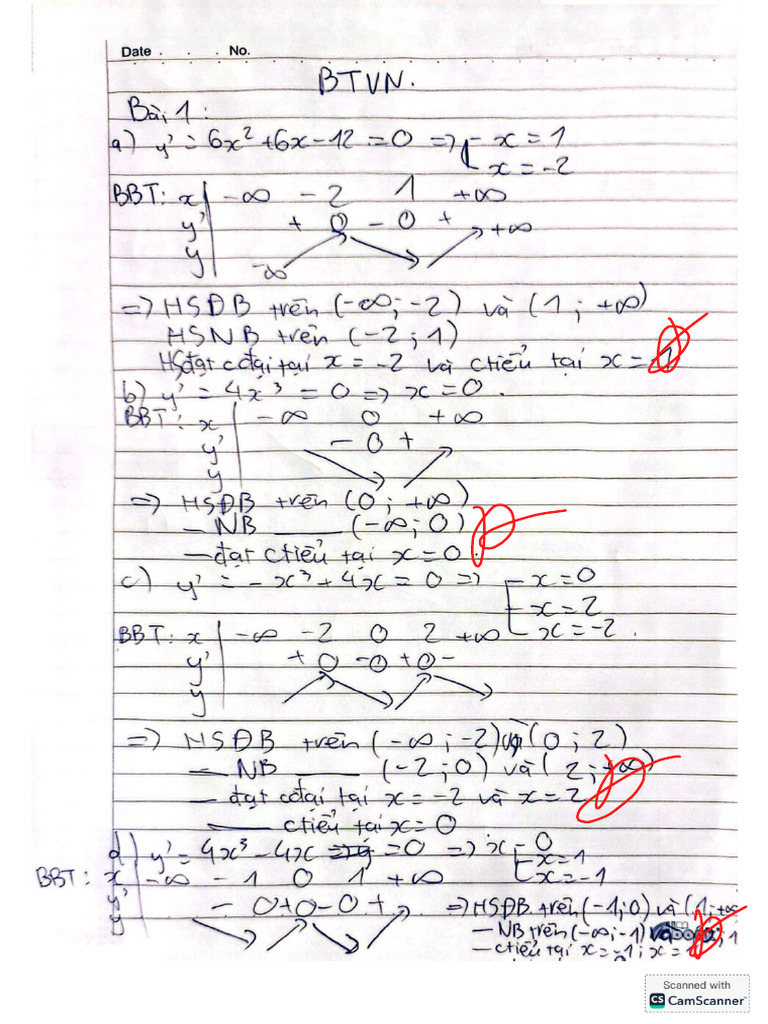 Date . . . No.
BTVN.
Bài 1:
a) y' = 6x² + 6x - 12 = 0 => [ x = 1
x = -2
BBT: x | -∞ -2 1 +∞
y' | + 0 - 0 +
y | -∞ +∞
=> HSĐB trên (-∞; -2) và (1; +∞)
HSNB trên (-2; 1)
HSđạt cđại tại x = -2 và ctiểu tại x = 1
b) y' = 4x³ = 0 => x = 0.
BBT: x | -∞ 0 +∞
y' | - 0 +
y
=> HSĐB trên (0; +∞)
- NB ___ (-∞; 0)
- đạt ctiểu tại x = 0.
c) y' = -x³ + 4x = 0 => [ x = 0
x = 2
x = -2.
BBT: x | -∞ -2 0 2 +∞
y' | + 0 - 0 + 0 -
y
=> HSĐB trên (-∞; -2) và (0; 2)
- NB ___ (-2; 0) và (2; +∞)
- đạt cđại tại x = -2 và x = 2
___ ctiểu tại x = 0
d) y' = 4x³ - 4x = 0 => [ x = 0
x = 1
x = -1
BBT: x | -∞ -1 0 1 +∞
y' | - 0 + 0 - 0 +
y
=> HSĐB trên (-1; 0) và (1; +∞
- NB trên (-∞; -1)
- ctiểu tại x = -1; x =
Scanned with
CS CamScanner